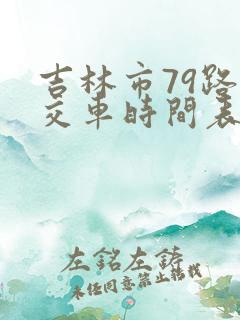 吉林市79路
交車時間表
左銘左鋳
未任同意禁止轉載